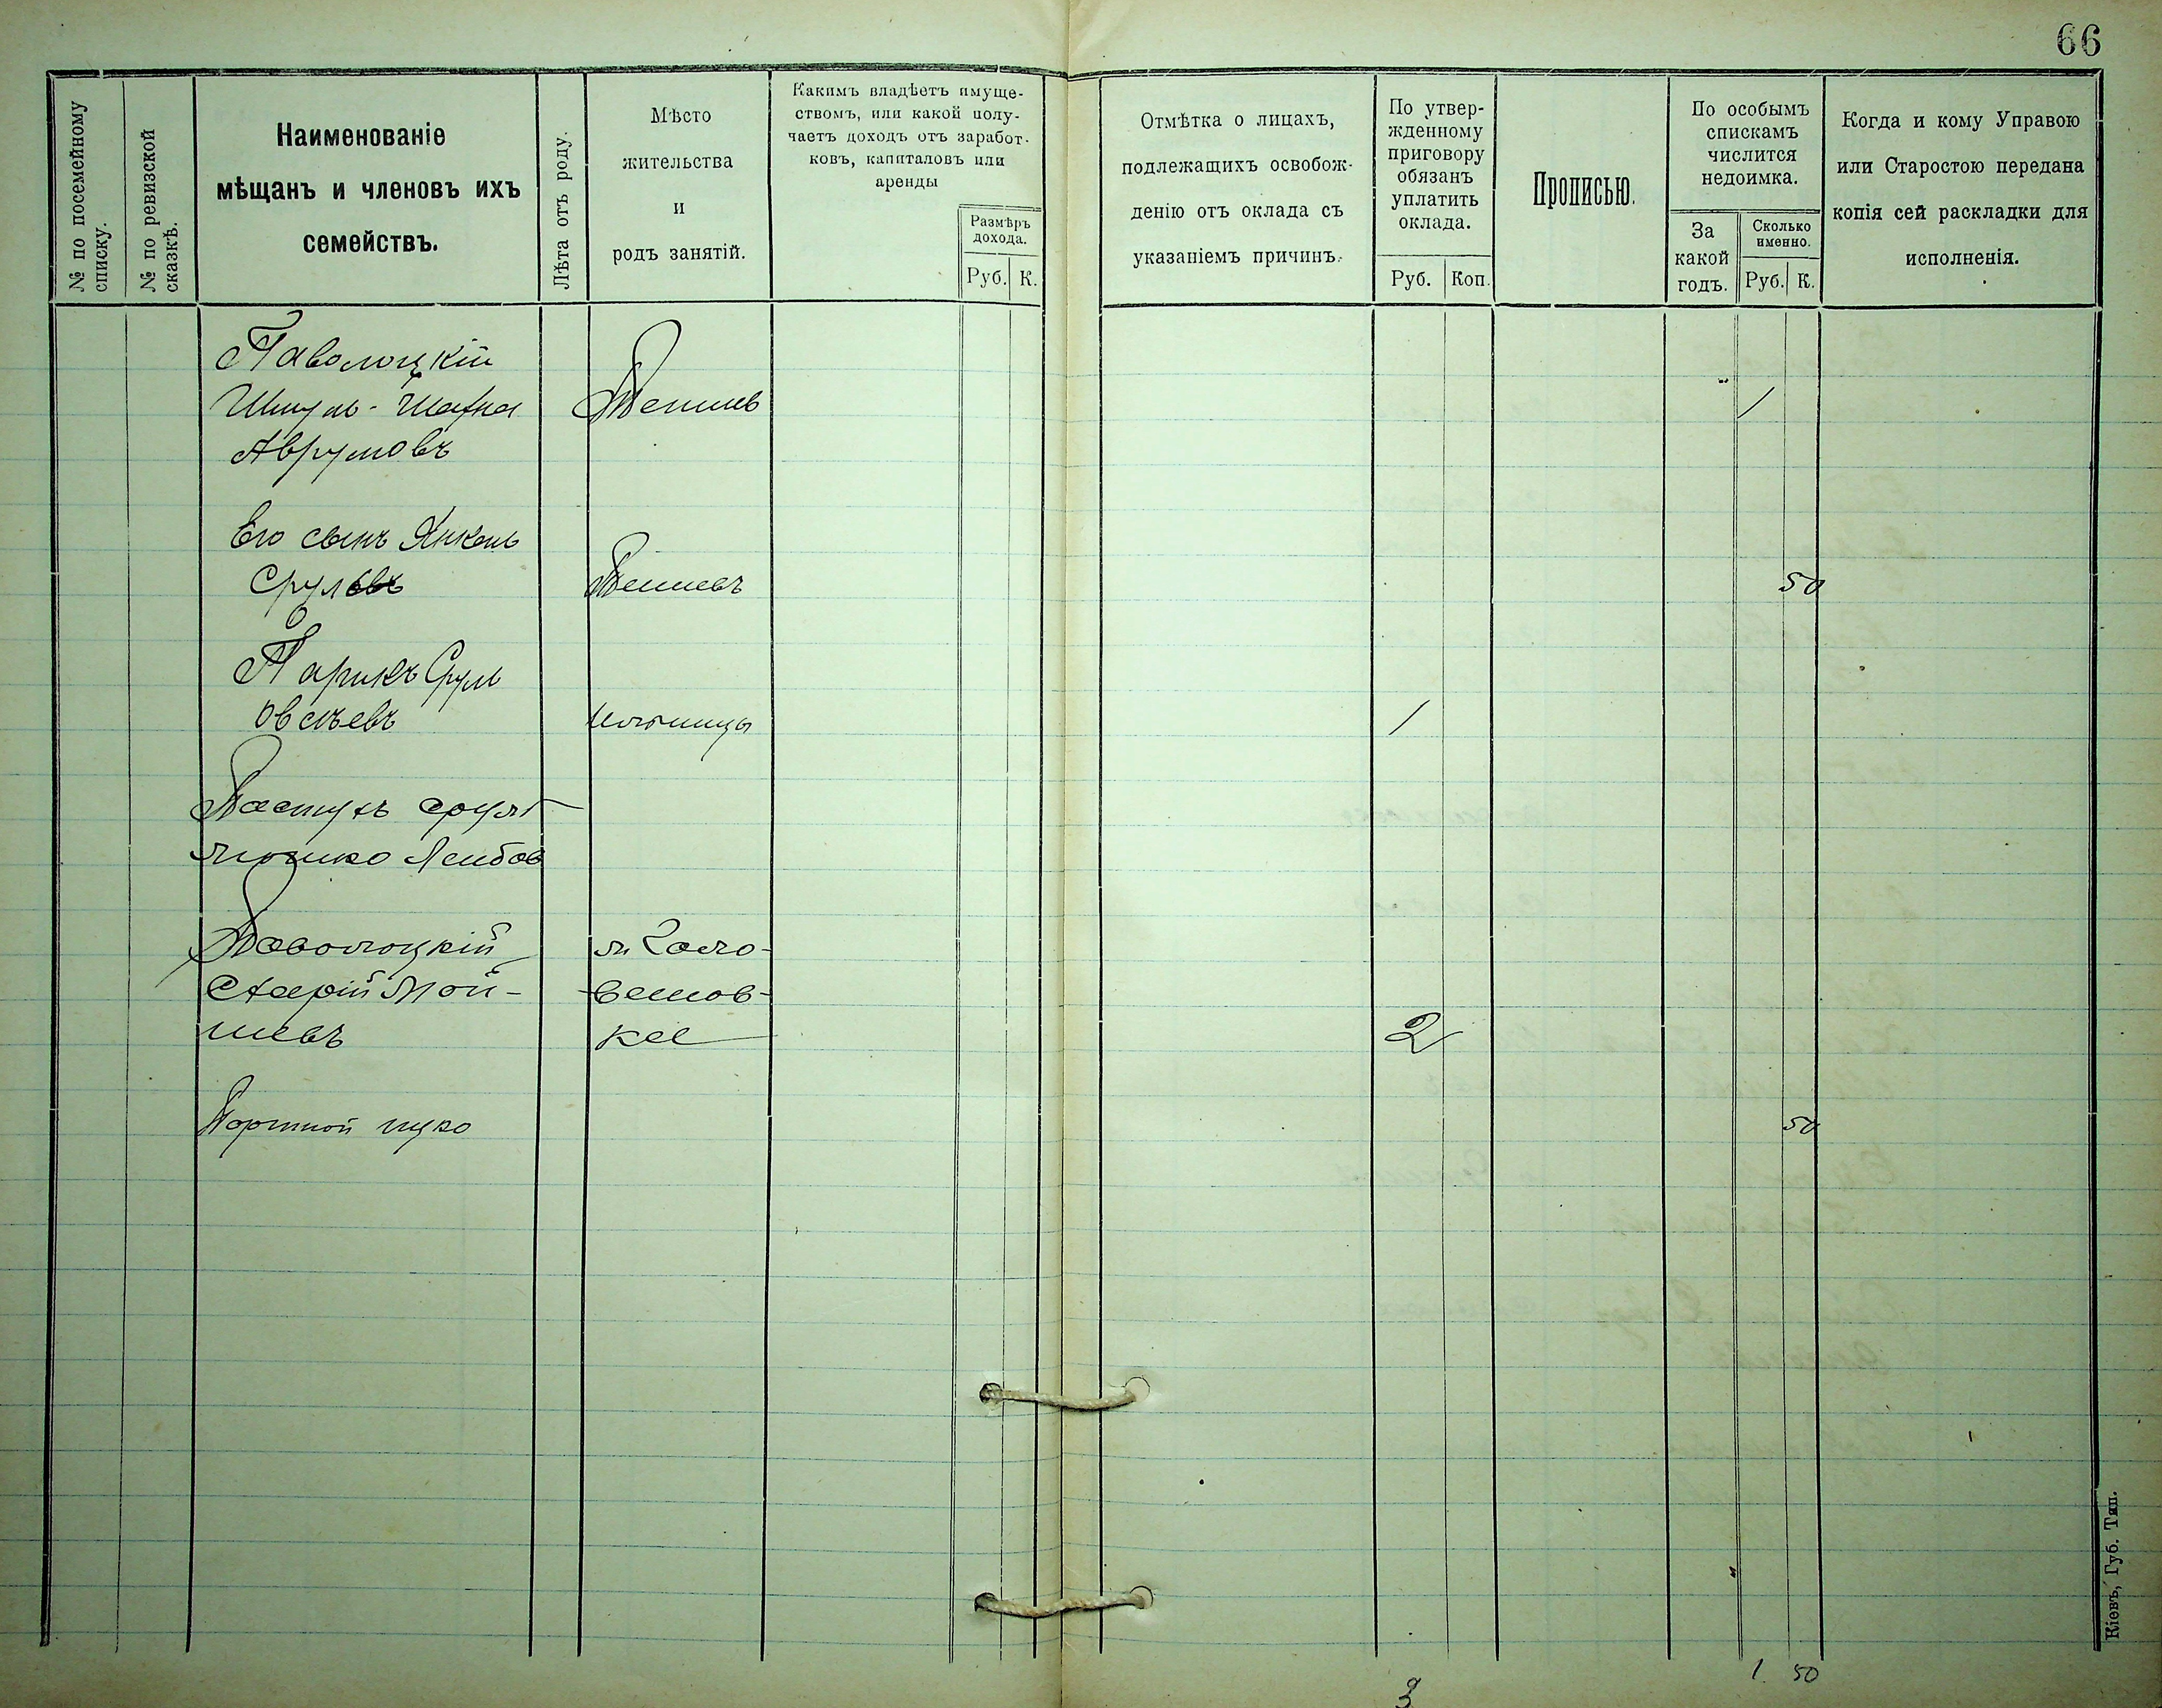 66
№ по посемейному
списку.
№ по ревизской
сказкѣ.
Наименованіе
мѣщанъ и членовъ ихъ
семействъ.
Лѣта отъ роду.
Мѣсто
жительства
и
родъ занятій.
Какимъ владѣетъ имуще-
ствомъ, или какой полу-
чаетъ доходъ отъ заработ-
ковъ, капиталовъ или
аренды
Размѣръ
дохода.
Руб. К.
Отмѣтка о лицахъ,
подлежащихъ освобож-
денію отъ оклада съ
указаніемъ причинъ.
По утвер-
жденному
приговору
обязанъ
уплатить
оклада.
Руб. Коп.
Прописью.
По особымъ
спискамъ
числится
недоимка.
За
какой
годъ.
Сколько
именно.
Руб. К.
Когда и кому Управою
или Старостою передана
копія сей раскладки для
исполненія.
Паволоцкій
Шмуль-Шахна
Аврумовъ
1
Его сынъ Янкель
Срул
50
Парикъ Сруль
Овсѣевъ
1
Пастухъ Срулъ
Лейбов
Паволоцкій
Мой-
шевъ
м Голо-
ванов-
ка
2
Портной
50
3
1 50
Кіевъ, Губ. Тип.